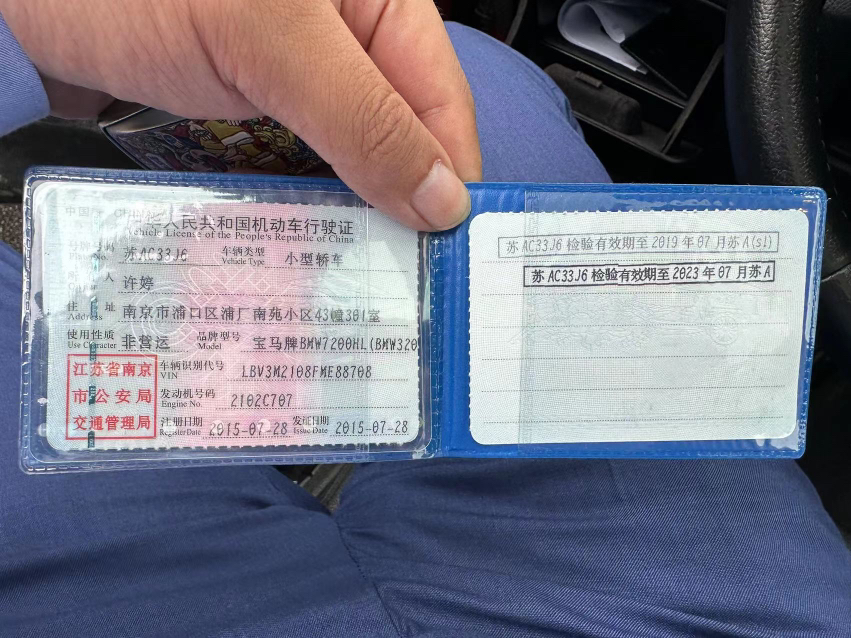 中国 CHI
人民共和国机动车行驶证
Vehicle License of the People's Republic of China
号牌号码 苏AC33J6 车辆类型 小型轿车
No. Vehicle Type
人 许婷
住 址 南京市浦口区浦厂南苑小区43幢301室
Address
使用性质 非营运 品牌型号 宝马牌BMW7200HL(BMW320
Use Character Model
江苏省南京
市公安局
交通管理局
车辆识别代号 LBV3M2108FME88708
VIN
发动机号码 2102C707
Engine No.
注册日期 2015-07-28 发证日期 2015-07-28
Register Date Issue Date
苏AC33J6检验有效期至2019年07月苏A(sl)
苏AC33J6检验有效期至2023年07月苏A